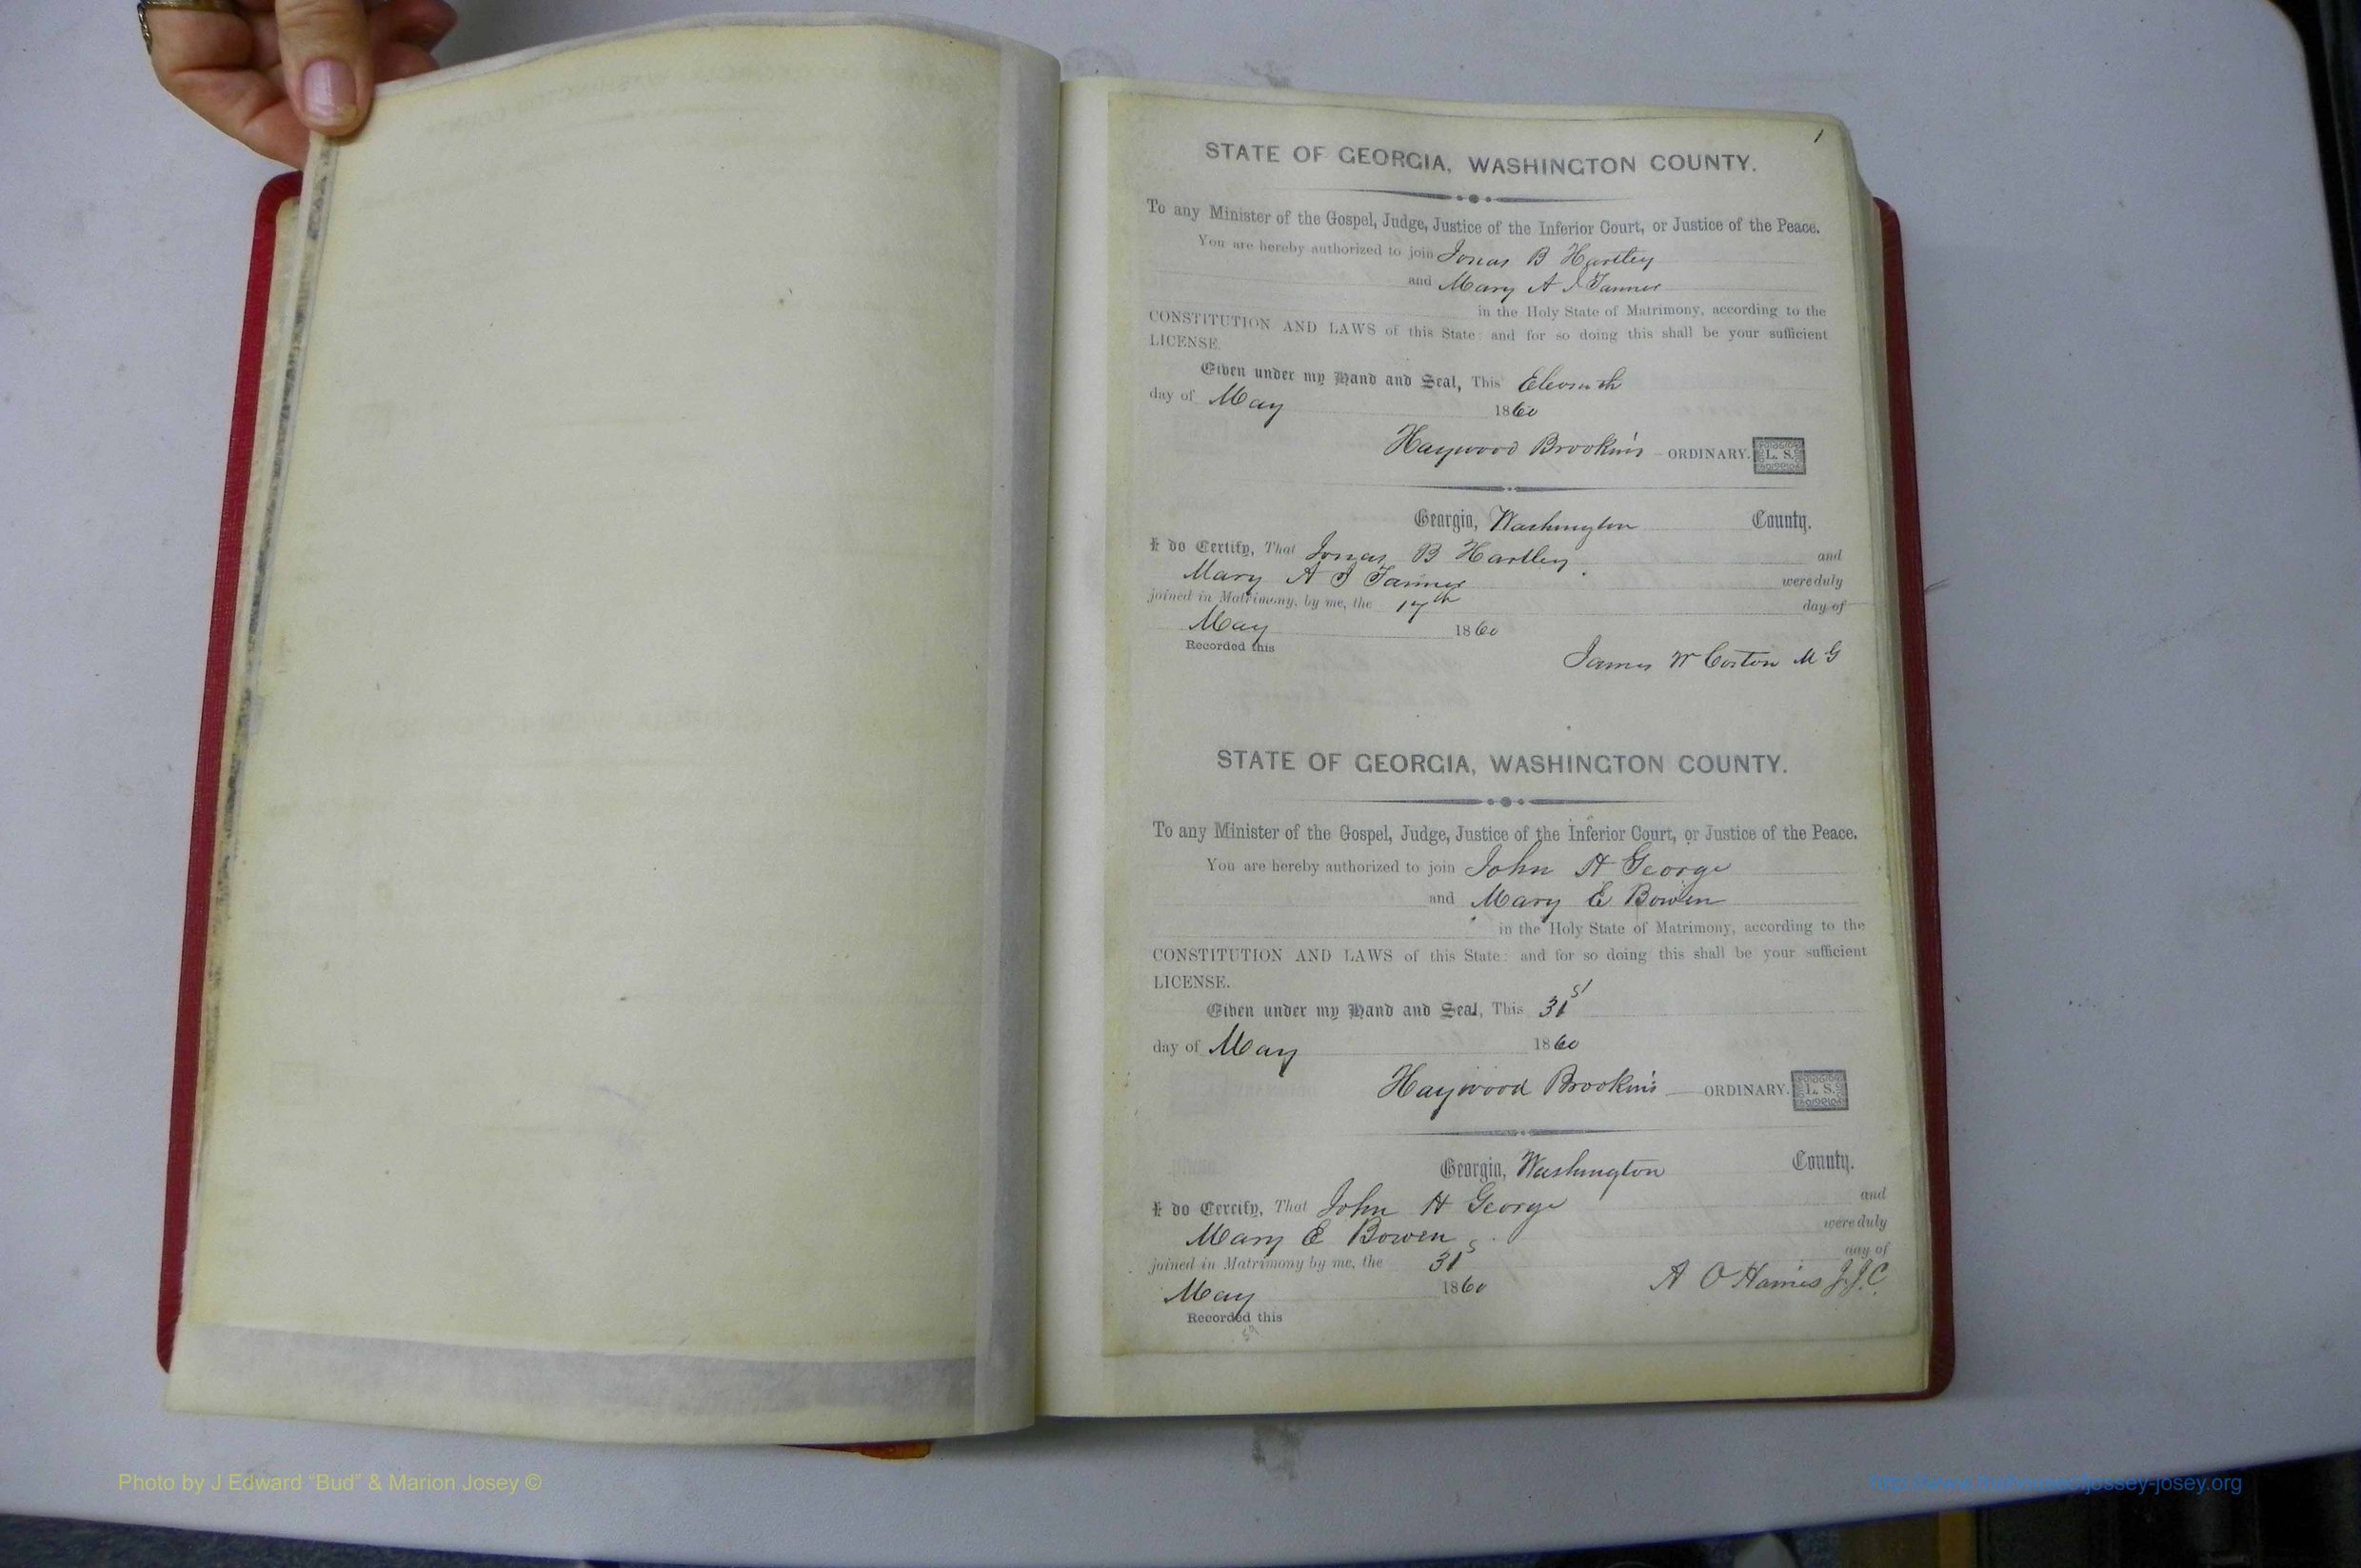 1
STATE OF GEORGIA, WASHINGTON COUNTY.
To any Minister of the Gospel, Judge, Justice of the Inferior Court, or Justice of the Peace.
You are hereby authorized to join Jonas B Hartley
and Mary A J Tanner
in the Holy State of Matrimony, according to the
CONSTITUTION AND LAWS of this State: and for so doing this shall be your sufficient
LICENSE.
Given under my Hand and Seal, This Eleventh
day of May 1860
Haywood Brookins ORDINARY. L. S.
Georgia, Washington County.
I do Certify, That Jonas B Hartley and
Mary A J Tanner were duly
joined in Matrimony, by me, the 17th day of
May 1860
Recorded this
James W M G
STATE OF GEORGIA, WASHINGTON COUNTY.
To any Minister of the Gospel, Judge, Justice of the Inferior Court, or Justice of the Peace.
You are hereby authorized to join John H George
and Mary E Bowen
in the Holy State of Matrimony, according to the
CONSTITUTION AND LAWS of this State: and for so doing this shall be your sufficient
LICENSE.
Given under my Hand and Seal, This 31st
day of May 1860
Haywood Brookins ORDINARY. L. S.
Georgia, Washington County.
I do Certify, That John H George and
Mary E Bowen were duly
joined in Matrimony by me, the 31s day of
May 1860
A O J.J.C.
Recorded this
Photo by J Edward “Bud” & Marion Josey ©